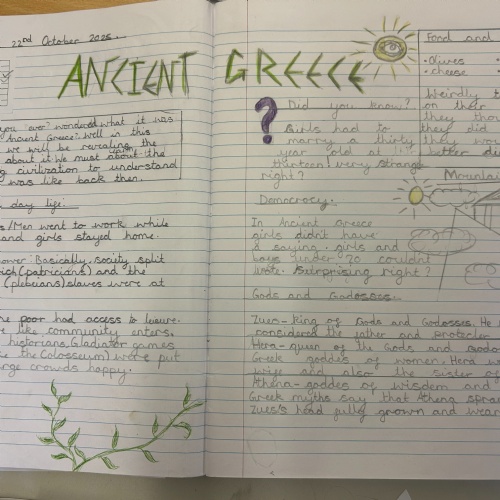 22nd October 2025.
ANCIENT GREECE
you "ever" wondered what it was
Ancient Greece? Well in this
we will be revealing the
about it. We must about the
civilization to understand
was like back then.
day life:
s/Men went to work while
and girls stayed home.
ower: Basically, society split
rich (patricians) and the
(plebeians) slaves were at
e poor had access to leisure.
e like community enters.
historians, Gladiator games
ke the Colosseum) were put
arge crowds happy.
? Did you know?
Girls had to
marry a thirty
year old at
thirteen! very strange
right?
Democracy.
In Ancient Greece
girls didn't have
a saying. girls and
boys under 20 couldnt
vote. Surprising right?
Gods and Godesses.
Zues- king of Gods and Godesses. He
considered the father and protector
Hera- queen of the Gods and
Greek goddes of women. Hera w
wife and also the sister of
Athena- goddes of wisdom and
Greek myths say that Athena spra
Zues's head fully grown and wear
Food and
•Olives
•cheese
Weirdly t
on their
they thou
they did
they wou
better di
Mountai